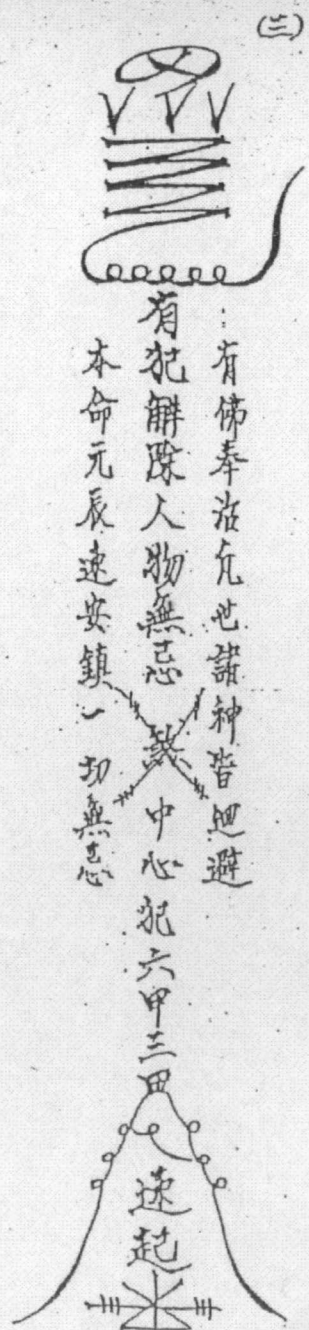 (三)
有佛奉沽凢世諸神皆迴避
有犯解除人物無忌煞中心犯六甲三
本命元辰速安鎮一切無忌
速起